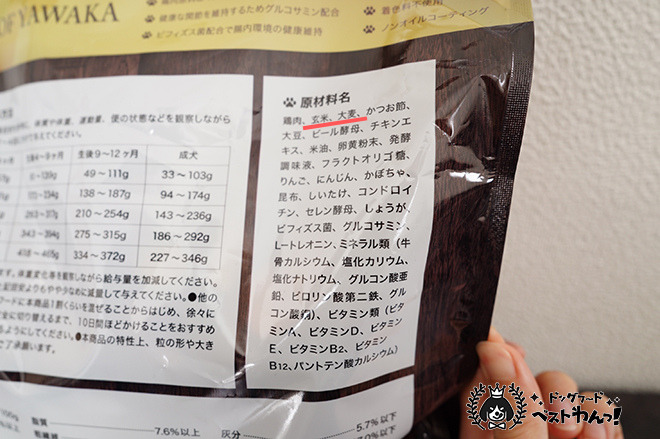 OFYAWAKA
健康な関節を維持するためグルコサミン配合
ビフィズス菌配合で腸内環境の健康維持
着色料不使用
ノンオイルコーティング
体質や体重、運動量、便の状態などを観察しながら
生後9～12ヶ月
成犬
49～111g
33～103g
138～187g
94～174g
210～254g
143～236g
275～315g
186～292g
334～372g
227～346g
ます。体重変化等を観察しながら給与量を加減してください。
記目安よりもやや少なめに減量して与えてください。●他の
フードに本商品1割くらいを混ぜることからはじめ、徐々に
全に切り替えるまで、10日間ほどかけることをおすすめ
るようにしてください。●本商品の特性上、粒の形や大き
ご了承願います。
原材料名
鶏肉、玄米、大麦、かつお節、
大豆、ビール酵母、チキンエ
キス、米油、卵黄粉末、発酵
調味液、フラクトオリゴ糖、
りんご、にんじん、かぼちゃ、
昆布、しいたけ、コンドロイ
チン、セレン酵母、しょうが、
ビフィズス菌、グルコサミン、
L-トレオニン、ミネラル類（牛
骨カルシウム、塩化カリウム、
塩化ナトリウム、グルコン酸亜
鉛、ピロリン酸第二鉄、グル
コン酸銅）、ビタミン類（ビ
タミンA、ビタミンD、ビタミン
E、ビタミンB2、ビタミン
B12、パントテン酸カルシウム）
脂質
7.6%以上
灰分
5.7%以下
ドッグフード
ベストわんっ!